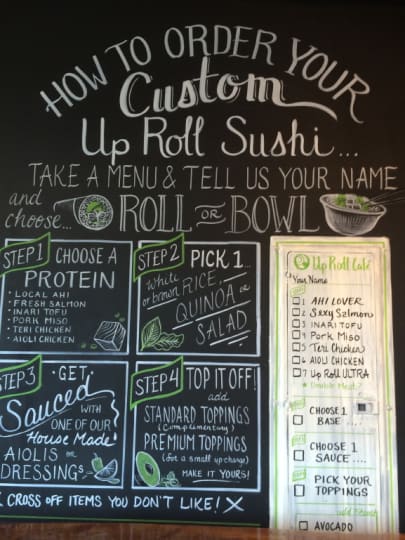 HOW TO ORDER YOUR
Custom
Up Roll Sushi...
TAKE A MENU & TELL US YOUR NAME
and choose... ROLL OR BOWL
STEP 1 CHOOSE A
PROTEIN
• LOCAL AHI
• FRESH SALMON
• INARI TOFU
• PORK MISO
• TERI CHICKEN
• AIOLI CHICKEN
STEP 2 PICK 1...
White
or brown RICE,
QUINOA or
SALAD
STEP 3 GET
Sauced WITH
ONE OF OUR
House Made
AIOLIS OR
DRESSINGS
STEP 4 TOP IT OFF!
add
STANDARD TOPPINGS
(Complimentary)
PREMIUM TOPPINGS
(for a small upcharge)
MAKE IT YOURS!
CROSS OFF ITEMS YOU DON'T LIKE! X
Up Roll Café
Your Name
1 AHI LOVER
2 Sexy Salmon
3 INARI TOFU
4 Pork Miso
5 Teri Chicken
6 AIOLI CHICKEN
7 Up Roll ULTRA
* Double Meat?
CHOOSE 1
BASE ....
CHOOSE 1
SAUCE ....
PICK YOUR
TOPPINGS
AVOCADO